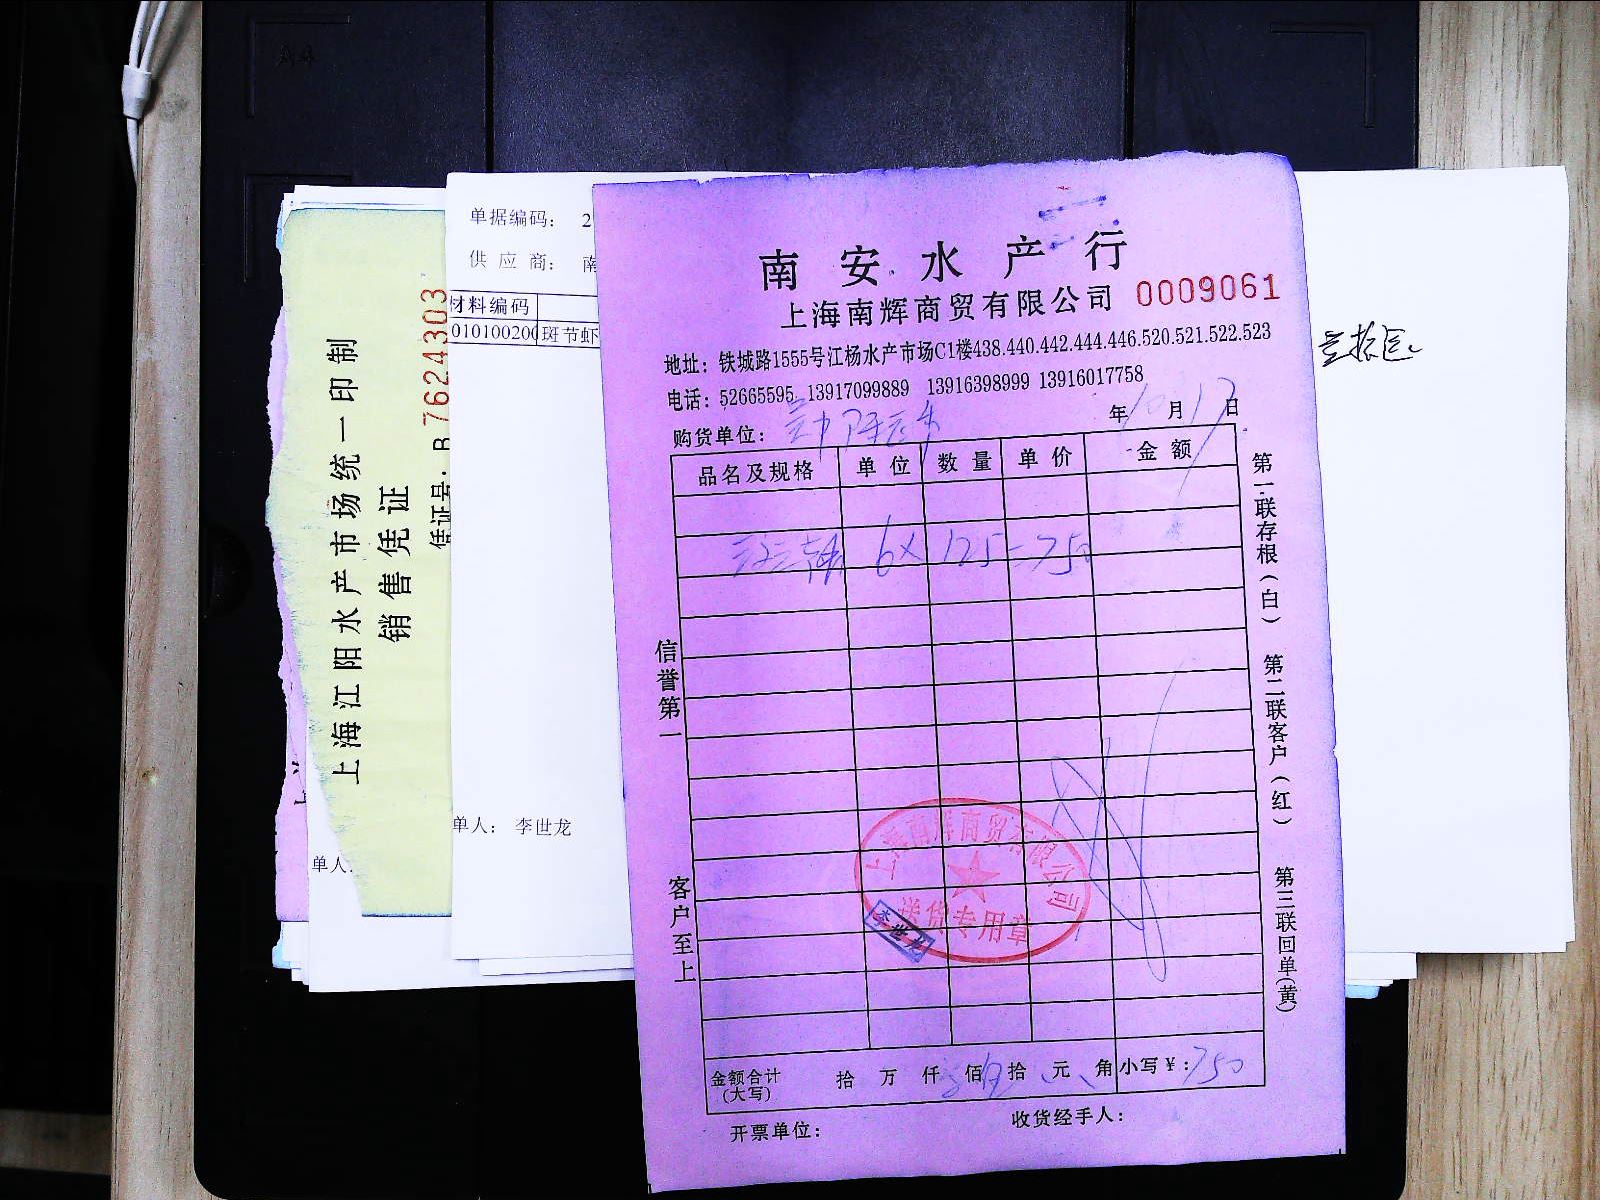 南安水产行
上海南辉商贸有限公司 0009061
地址：铁城路1555号江杨水产市场C1楼438.440.442.444.446.520.521.522.523
电话：52665595 13917099889 13916398999 13916017758
年10月17日
购货单位：
品名及规格 单位 数量 单价 金额
6×125=750
信誉第一
客户至上
第一联存根（白）
第二联客户（红）
第三联回单（黄）
上海南辉商贸有限公司
送货专用章
李世龙
金额合计（大写） 拾 万 仟 佰 拾 元 角 小写￥：750
开票单位：
收货经手人：
单据编码： 2
供应商： 南
材料编码
010100200 斑节虾
单人： 李世龙
上海江阳水产市场统一印制
销售凭证
凭证号：B 7624303
单人：